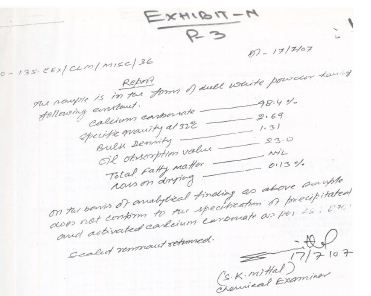 EXHIBIT-N
P-3
0-135-CEX/CLM/MISC/36
Dt-17/7/07
Report
The sample is in the form of dull white powder having
following constant.
Calcium carbonate — 98.4%
Specific gravity at 32°C — 2.69
Bulk Density — 1.31
Oil absorption value — 23.0
Total Fatty matter — NIL
Loss on drying — 0.13%
On the basis of analytical finding as above sample
does not confirm to the specification of precipitated
and activated calcium carbonate as per
Sealed remnant returned.
17/7/07
(S.K. Mittal)
Chemical Examiner